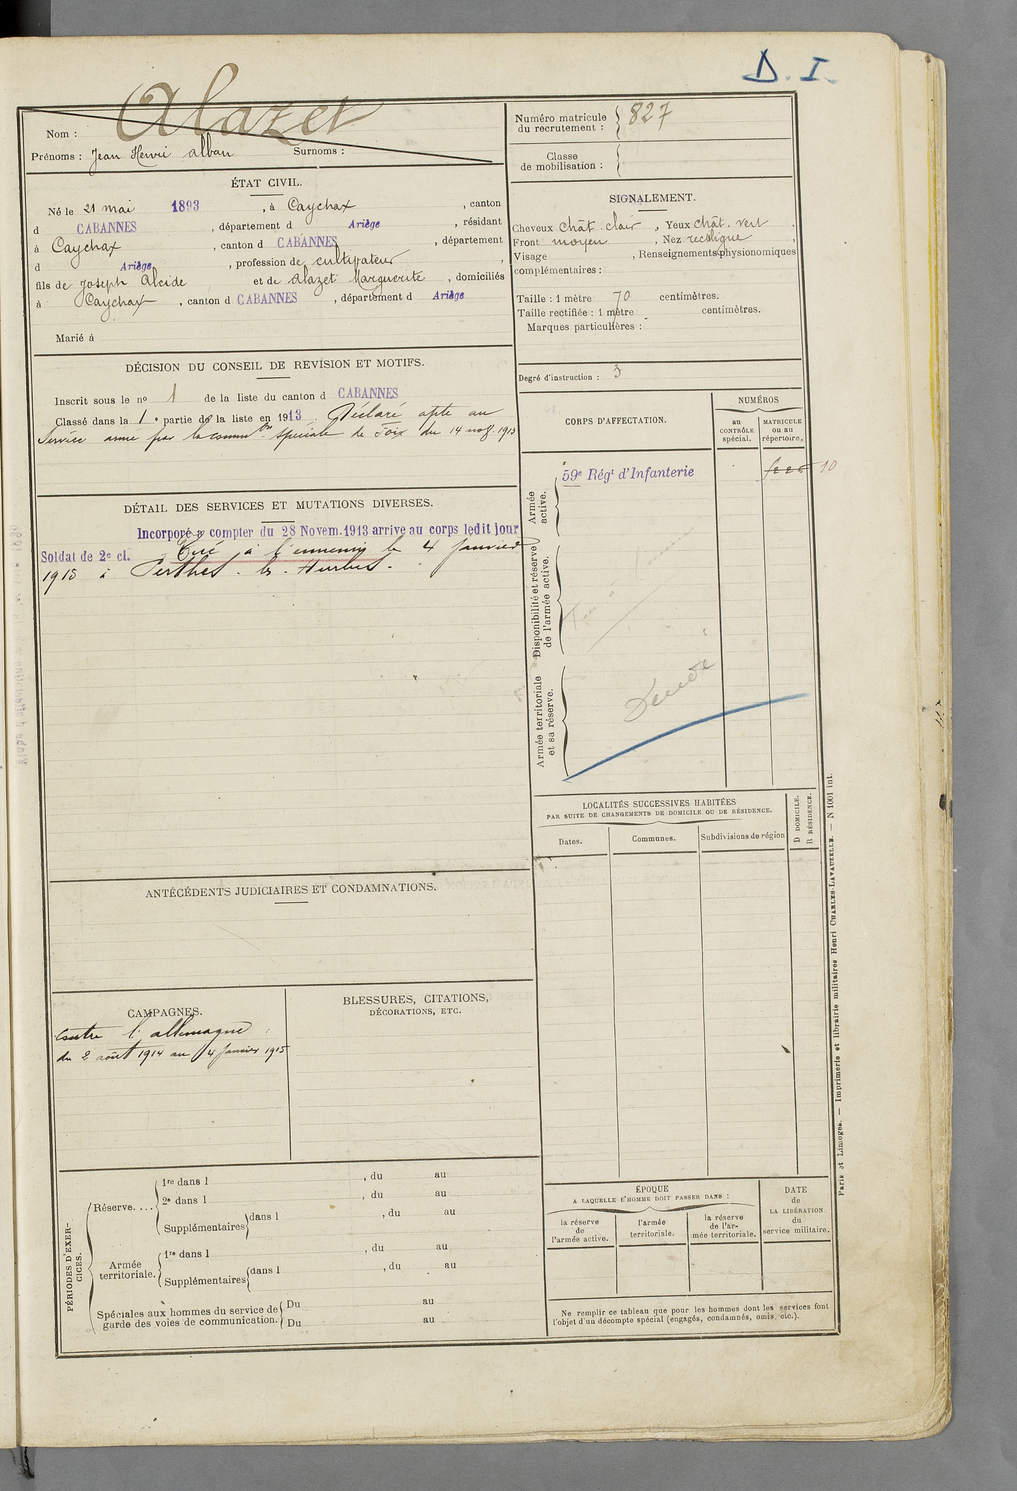 D. I.
Alazet
Nom :
Prénoms : Jean Henri alban Surnoms :
Numéro matricule du recrutement : 827
Classe de mobilisation :
ÉTAT CIVIL.
Né le 21 mai 1893, à Caychax, canton
d CABANNES, département d Ariège, résidant
à Caychax, canton d CABANNES, département
d Ariège, profession de cultivateur,
fils de Joseph Alcide et de Alazet Marguerite, domiciliés
à Caychax, canton d CABANNES, département d Ariège
Marié à
SIGNALEMENT.
Cheveux chât clair, Yeux chât. vert,
Front moyen, Nez rectiligne,
Visage , Renseignements physionomiques
complémentaires :
Taille : 1 mètre 70 centimètres.
Taille rectifiée : 1 mètre centimètres.
Marques particulières :
Degré d'instruction : 3
DÉCISION DU CONSEIL DE REVISION ET MOTIFS.
Inscrit sous le no 1 de la liste du canton d CABANNES
Classé dans la 1e partie de la liste en 1913. Déclaré apte au
service armé par la common spéciale de Foix du 14 nov. 1913
DÉTAIL DES SERVICES ET MUTATIONS DIVERSES.
Incorporé à compter du 28 Novem. 1913 arrive au corps ledit jour
Soldat de 2e cl. Tué à l'ennemi le 4 Janvier
1915 à Perthes-les-Hurlus.
CORPS D'AFFECTATION.
NUMÉROS
au CONTRÔLE spécial.
MATRICULE ou au répertoire.
Armée active.
59e Régt d'Infanterie
10
Disponibilité et réserve de l'armée active.
Armée territoriale et sa réserve.
LOCALITÉS SUCCESSIVES HABITÉES
PAR SUITE DE CHANGEMENTS DE DOMICILE OU DE RÉSIDENCE.
Dates. Communes. Subdivisions de région
D DOMICILE.
R RÉSIDENCE.
ANTÉCÉDENTS JUDICIAIRES ET CONDAMNATIONS.
CAMPAGNES.
Contre l'allemagne :
du 2 août 1914 au 4 janvier 1915
BLESSURES, CITATIONS,
DÉCORATIONS, ETC.
PÉRIODES D'EXERCICES.
Réserve....
1re dans l , du au
2e dans l , du au
Supplémentaires dans l , du au
Armée territoriale.
1re dans l , du au
Supplémentaires dans l , du au
Spéciales aux hommes du service de
garde des voies de communication.
Du au
Du au
ÉPOQUE
A LAQUELLE L'HOMME DOIT PASSER DANS :
la réserve de l'armée active.
l'armée territoriale.
la réserve de l'armée territoriale.
DATE de LA LIBÉRATION du service militaire.
Ne remplir ce tableau que pour les hommes dont les services font
l'objet d'un décompte spécial (engagés, condamnés, omis, etc.).
Paris et Limoges. — Imprimerie et librairie militaires Henri CHARLES-LAVAUZELLE. — N 1001 int.